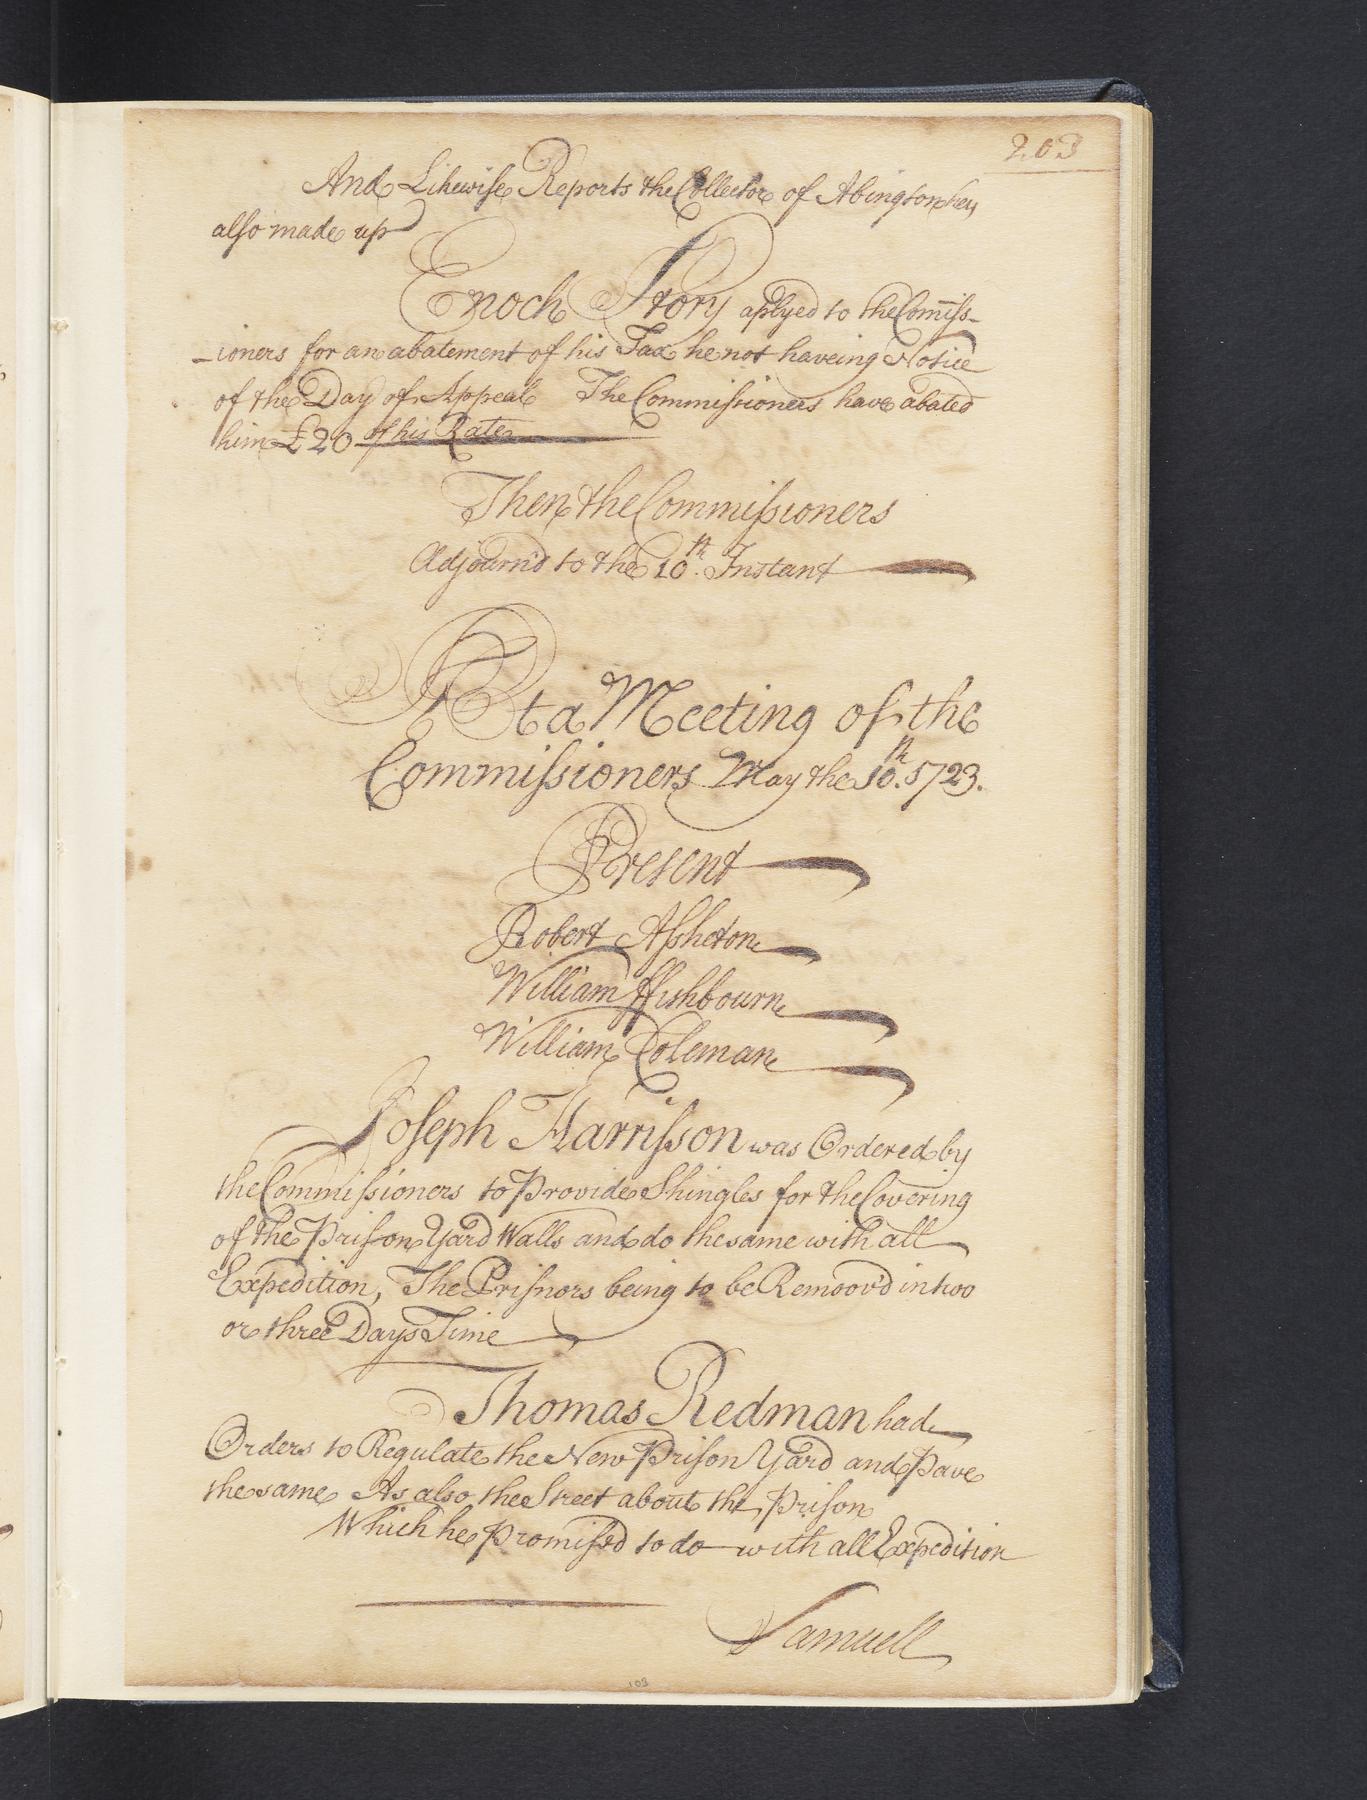 203
And Likewise Reports the Collector of Abington hey
also made up
Enoch Story aplyed to the Comiss-
-ioners for an abatement of his Tax he not haveing Notice
of the Day of Appeal The Commissioners have abated
him £20 of his Rate
Then the Commissioners
Adjourn'd to the 10th. Instant
At a Meeting of the
Commissioners May the 10th. 1723.
Present
Robert Assheton
William ffishbourn
William Coleman
Joseph Harrisson was Ordered by
the Commissioners to Provide Shingles for the Covering
of the Prison Yard Walls and do the same with all
Expedition, The Prisnors being to be Remoov'd in two
or three Days Time
Thomas Redman had
Orders to Regulate the New Prison Yard and Pave
the same As also the Street about the Prison
Which he promissd to do with all Expedition
Samuell
103